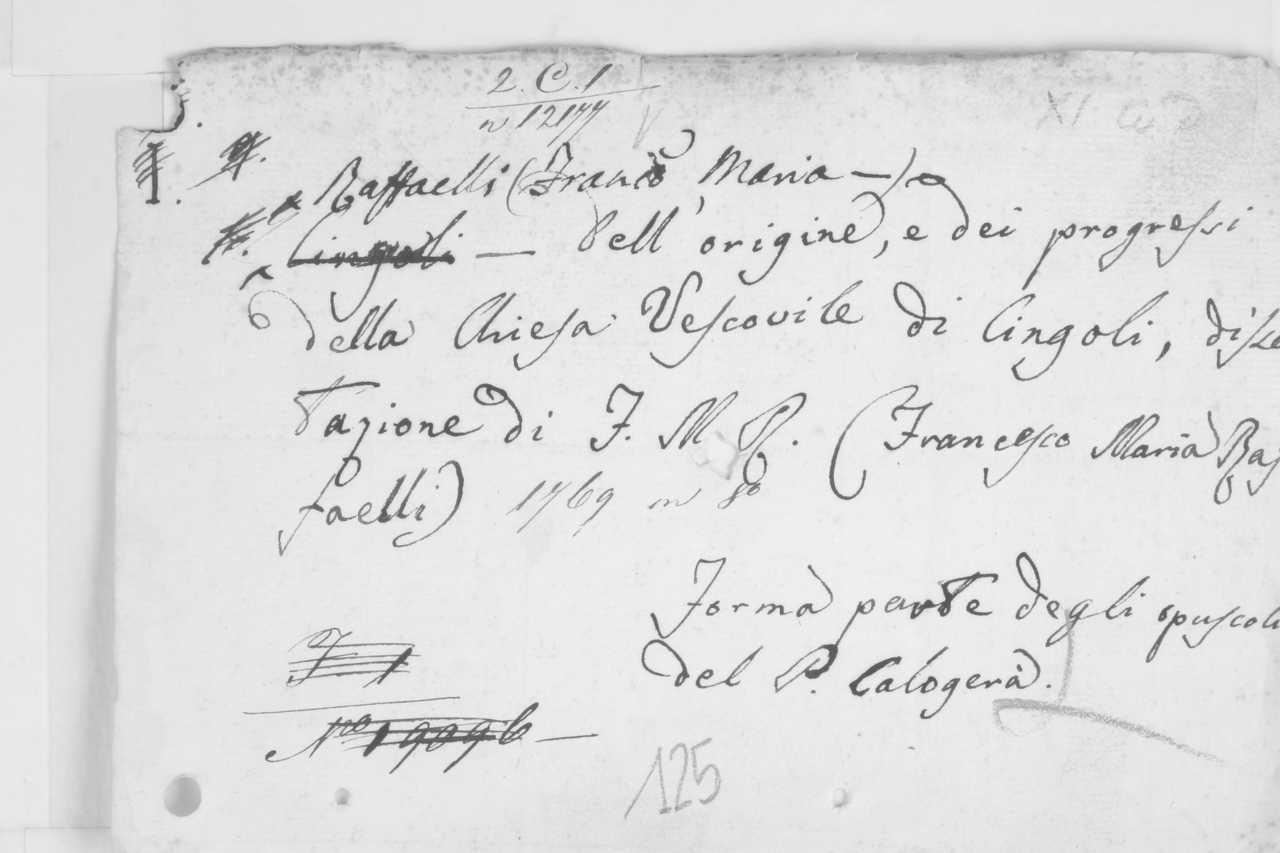 2. C. 1
n 12177
Raffaelli (Franc.o Maria —)
Cingoli — Dell' origine, e dei progressi
della Chiesa Vescovile di Cingoli, disse
tazione di F. M R. (Francesco Maria Raf
faelli) 1769 in 8o
Forma parte degli opuscoli
del P. Calogerà.
F 1
No 19096 —
125